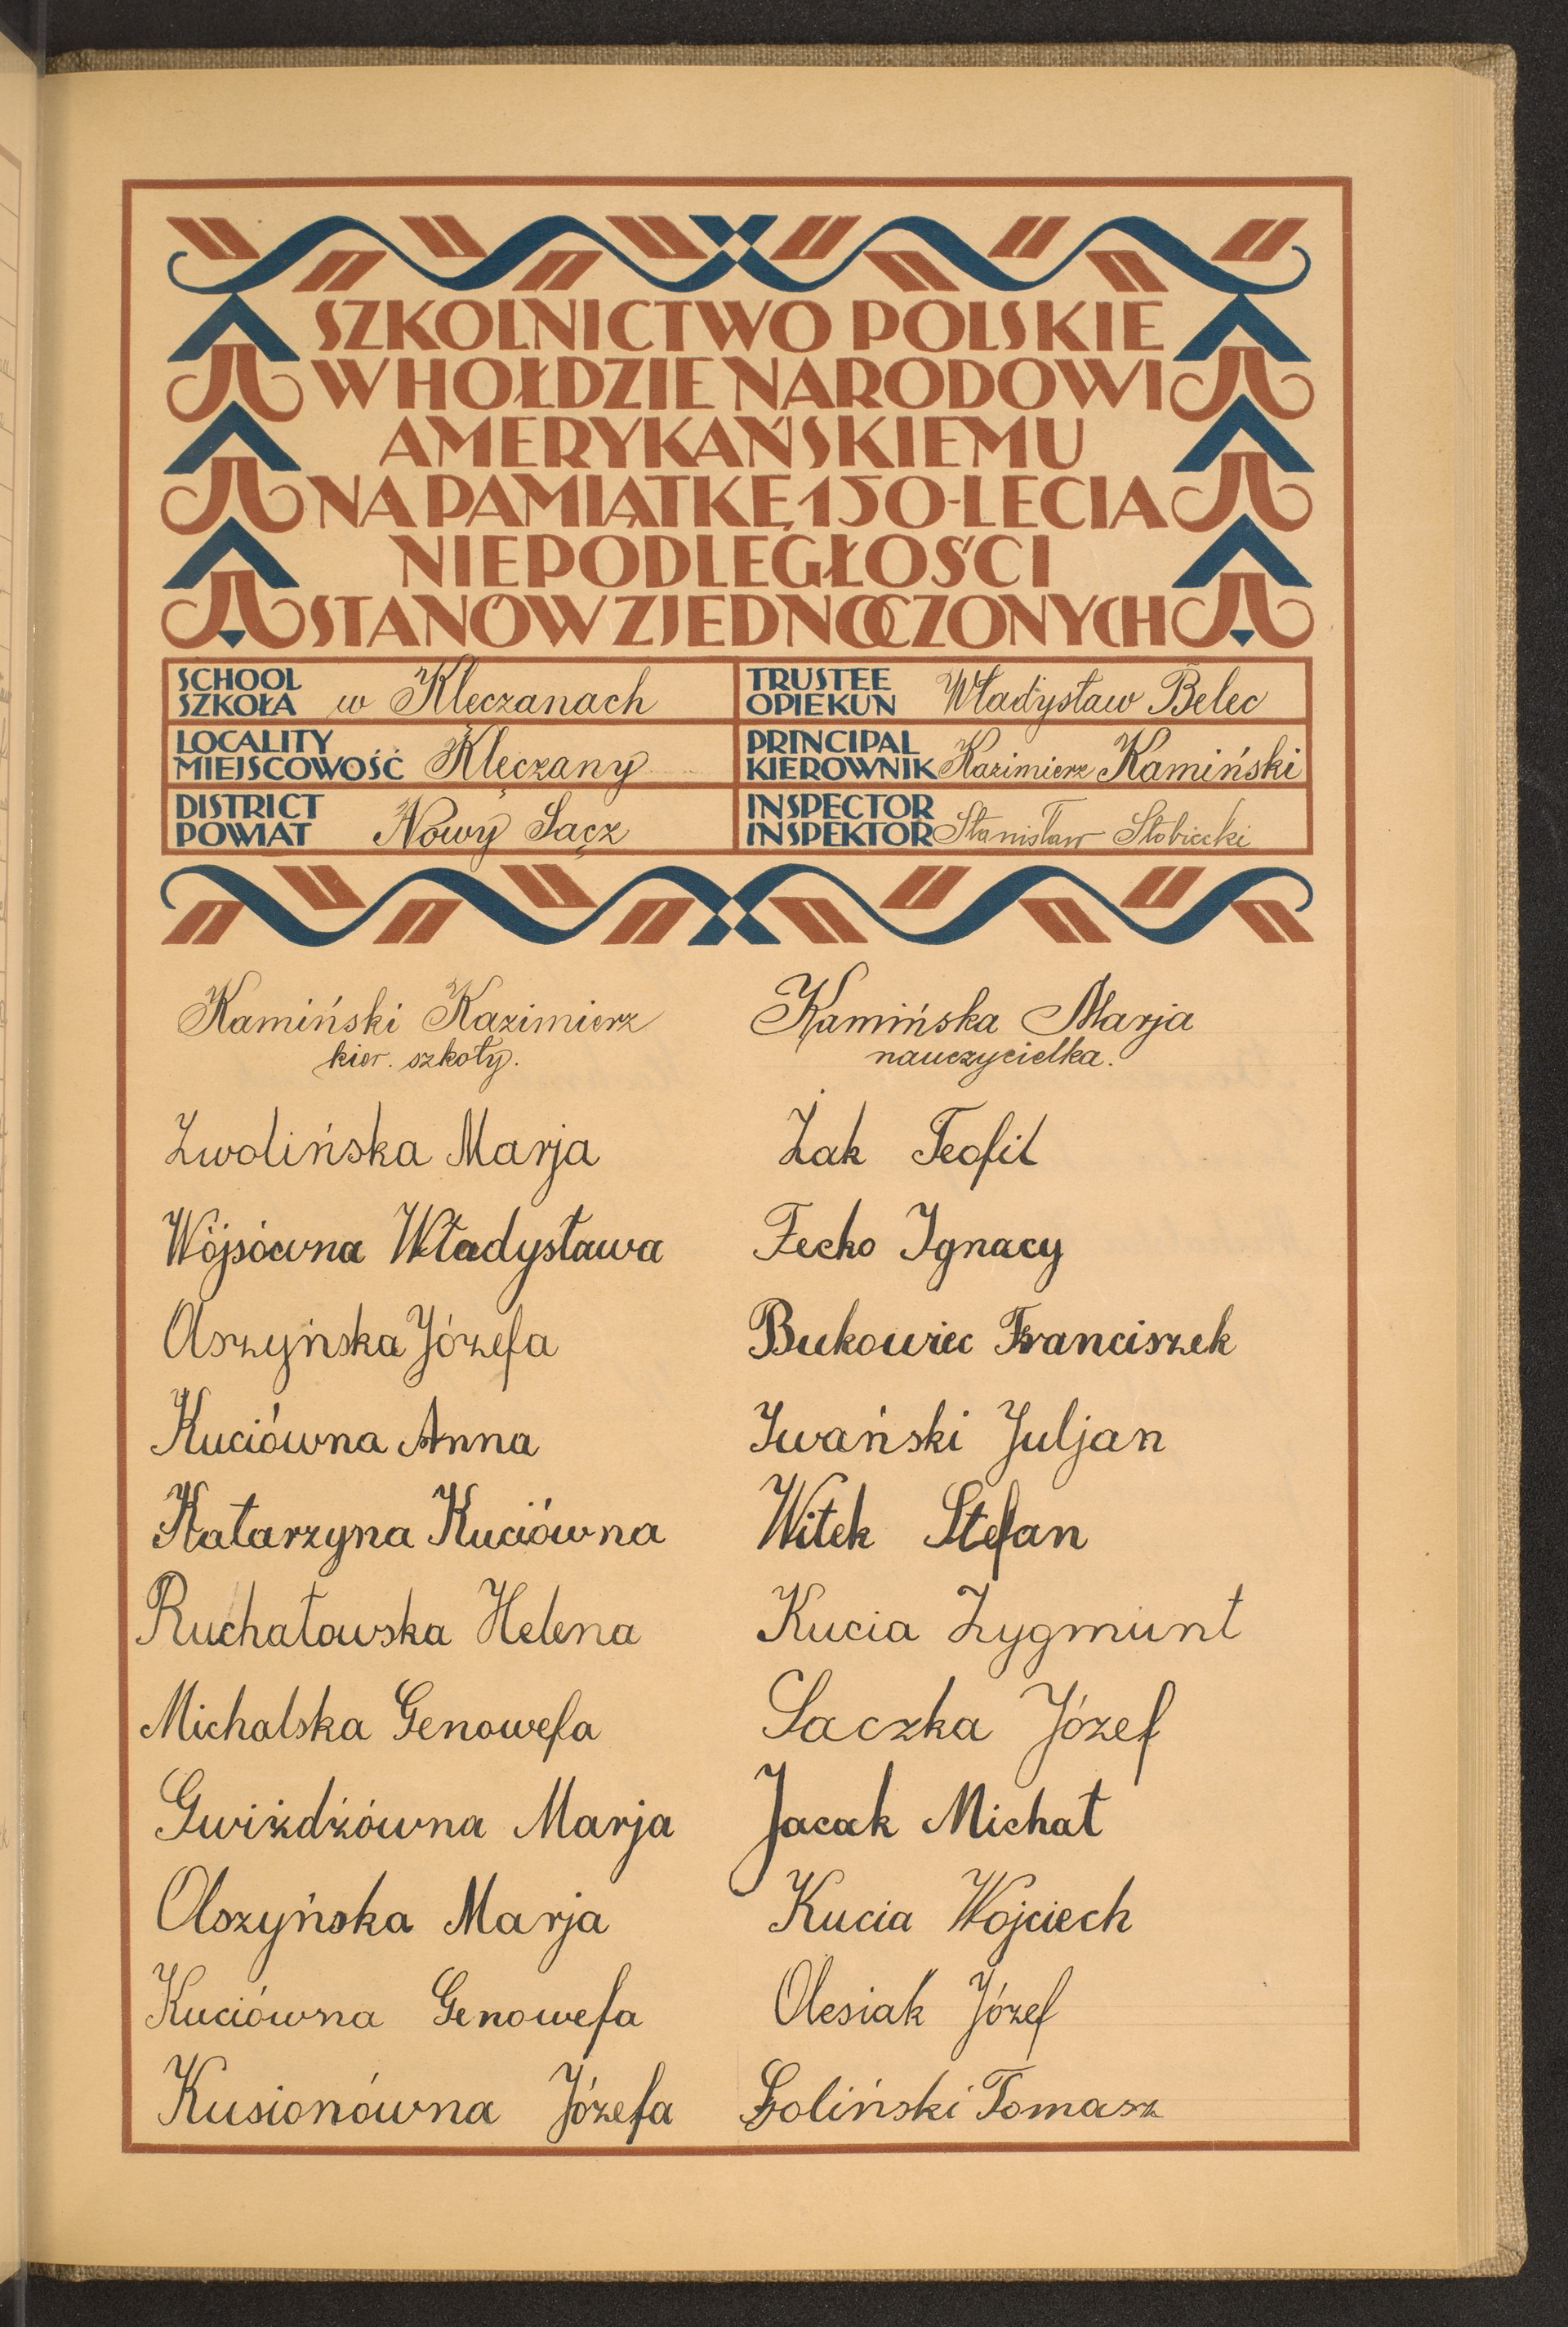 SZKOLNICTWO POLSKIE
W HOŁDZIE NARODOWI
AMERYKAŃSKIEMU
NA PAMIĄTKĘ 150-LECIA
NIEPODLEGŁOŚCI
STANÓW ZJEDNOCZONYCH
SCHOOL
SZKOŁA w Kleczanach
TRUSTEE
OPIEKUN Władysław Belec
LOCALITY
MIEJSCOWOŚĆ Klęczany
PRINCIPAL
KIEROWNIK Kazimierz Kamiński
DISTRICT
POWIAT Nowy Sącz
INSPECTOR
INSPEKTOR Stanisław Słobiecki
Kamiński Kazimierz
kier. szkoły.
Zwolińska Marja
Wójsówna Władysława
Olszyńska Józefa
Kuciówna Anna
Katarzyna Kuciówna
Ruchałowska Helena
Michalska Genowefa
Gwiżdżówna Marja
Olszyńska Marja
Kuciówna Genowefa
Kusionówna Józefa
Kamińska Marja
nauczycielka.
Żak Teofil
Fecko Ignacy
Bukowiec Franciszek
Iwański Juljan
Witek Stefan
Kucia Zygmunt
Saczka Józef
Jacak Michał
Kucia Wojciech
Olesiak Józef
Goliński Tomasz